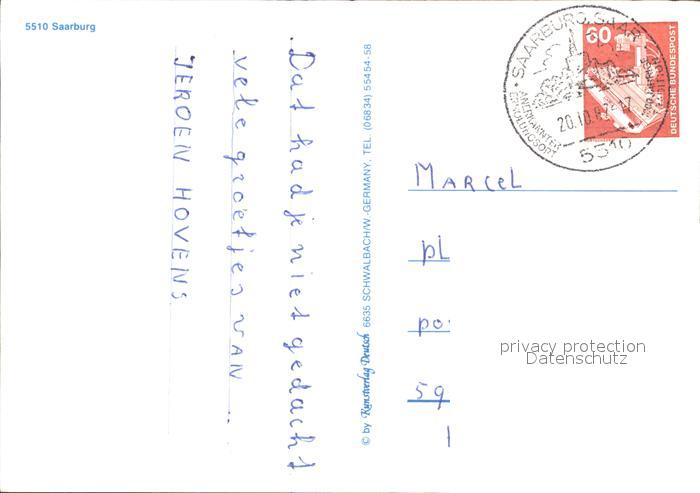 5510 Saarburg
Dat had je niet gedacht
vele groetjes VAN ...
JEROEN HOVENS
© by Kunstverlag Deutsch 6635 SCHWALBACH/W.-GERMANY, TEL. (06834) 55454-58
SAARBURG, SAAR
ANERKANNTER
ERHOLUNGSORT
5510
60
DEUTSCHE BUNDESPOST
MARCEL
pl
po.
59
1
privacy protection
Datenschutz